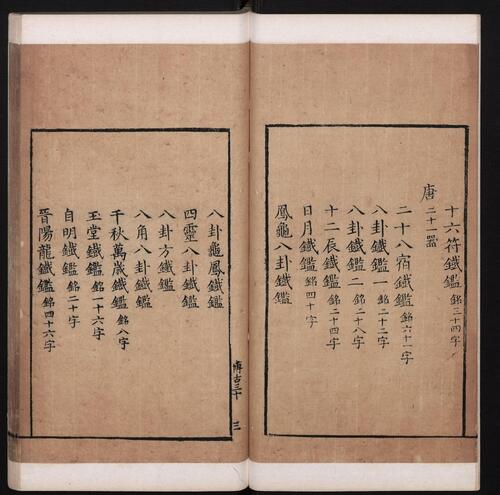 十六符鐵鑑 銘三十四字
唐 二十一器
二十八宿鐵鑑 銘六十一字
八卦鐵鑑一 銘二十二字
八卦鐵鑑二 銘二十八字
十二辰鐵鑑 銘二十四字
日月鐵鑑 銘四十字
鳳龜八卦鐵鑑
博古三十 三
八卦龜鳳鐵鑑
四靈八卦鐵鑑
八卦方鐵鑑
八角八卦鐵鑑
千秋萬歲鐵鑑 銘八字
玉堂鐵鑑 銘一十六字
自明鐵鑑 銘二十字
晉陽龍鐵鑑 銘四十六字